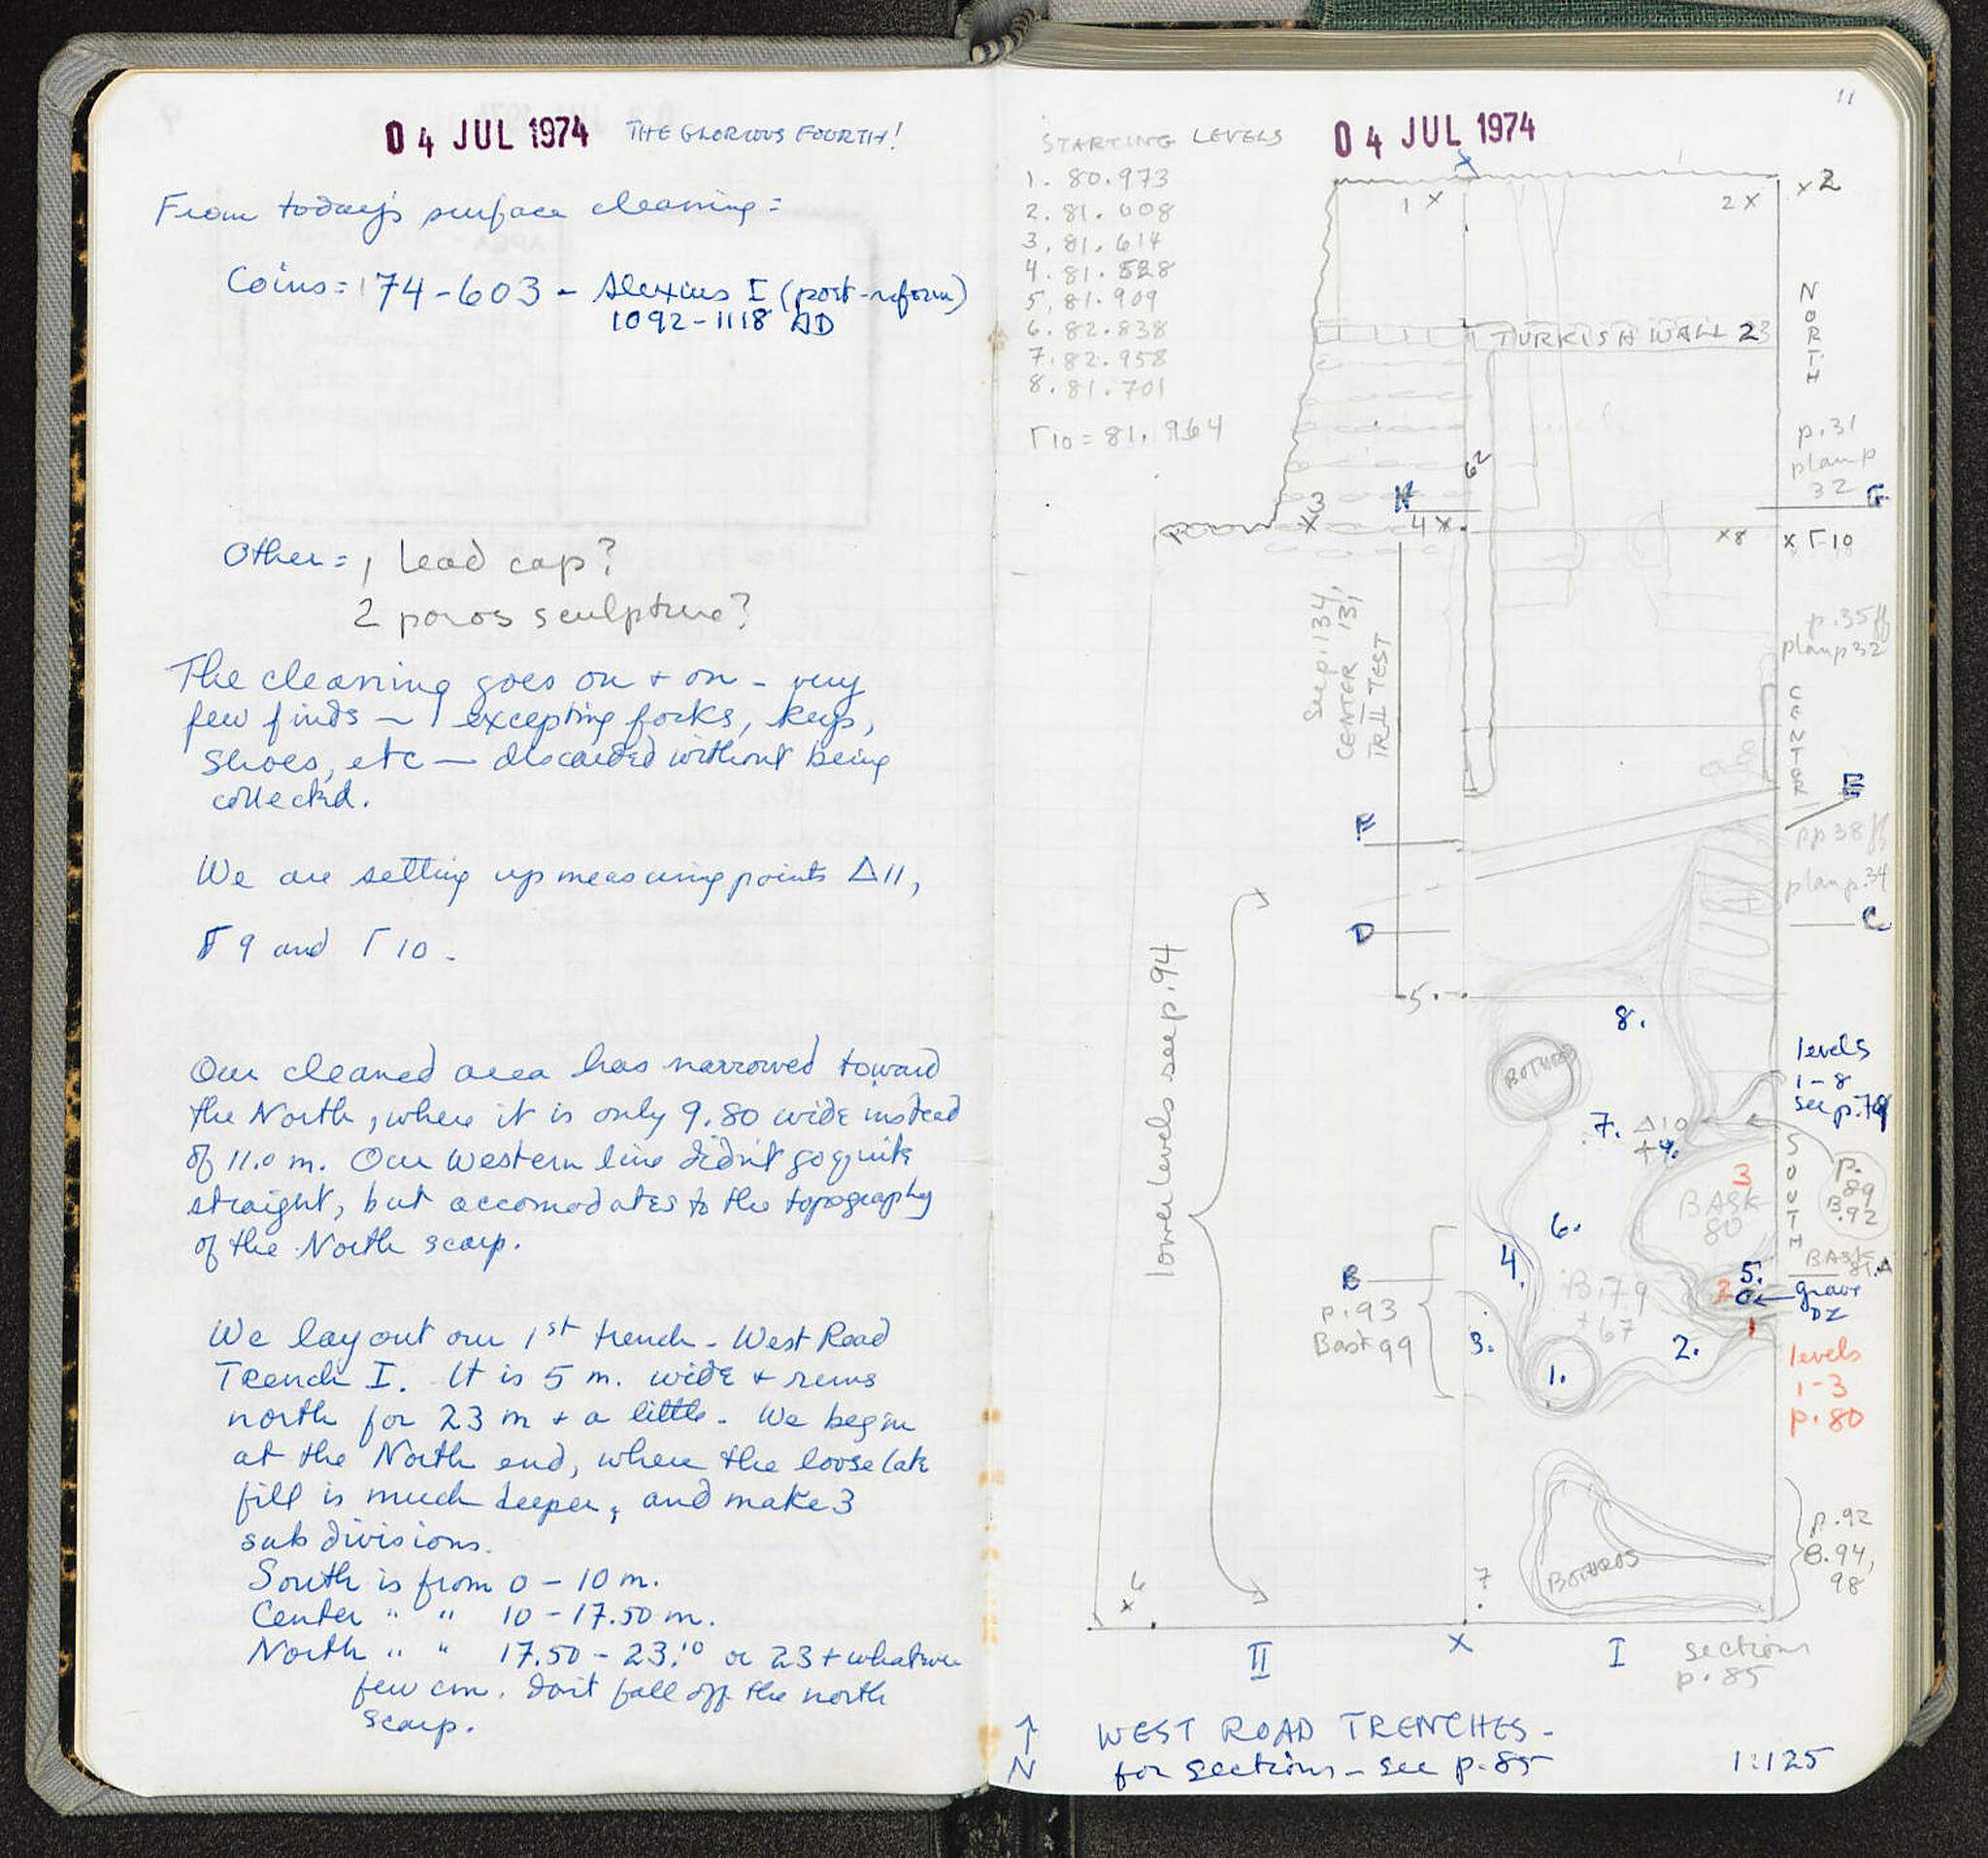 04 JUL 1974 THE GLORIOUS FOURTH!
From today's surface cleaning =
Coins = 74-603 - Alexius I (post-reform)
1092-1118 AD
Other = 1 lead cap?
2 poros sculpture?
The cleaning goes on + on - very
few finds — excepting forks, keys,
shoes, etc — discarded without being
collected.
We are setting up measuring points Δ11,
Γ9 and Γ10.
Our cleaned area has narrowed toward
the North, where it is only 9.80 wide instead
of 11.0 m. Our Western line didn't go quite
straight, but accomodates to the topography
of the North scarp.
We lay out our 1st trench - West Road
Trench I. It is 5 m. wide + runs
north for 23 m + a little. We begin
at the North end, where the loose late
fill is much deeper, and make 3
subdivisions.
South is from 0 - 10 m.
Center " " 10 - 17.50 m.
North " " 17.50 - 23.10 or 23 + whatever
few cm. Don't fall off the north
scarp.
11
04 JUL 1974
STARTING LEVELS
1. 80.973
2. 81.008
3. 81.614
4. 81.528
5. 81.909
6. 82.838
7. 82.958
8. 81.701
Γ10 = 81.964
1 X
2 X
x 2
TURKISH WALL 2
NORTH
p.31
plan p
32
G
62
X3
H
4 X
x8
x Γ10
See p. 134, 131
CENTER
TR II TEST
p.35ff
plan p 32
CENTER
E
F
pp 38 ff
plan p.34
D
C
5.
lower levels see p.94
8.
BOTHROS
levels
1-8
see p.79
7.
Δ10
+4.
3
BASK
80
SOUTH
p.
89
B.92
6.
4.
B
p.93
Bask 99
B.79
+ 67
BASK
5.
2
grave
DZ
1
3.
2.
1.
levels
1-3
p.80
BOTHROS
p.92
B.94,
98
x 6
7
II
X
I
sections
p.85
↑
N
WEST ROAD TRENCHES -
for sections - see p.85
1:125